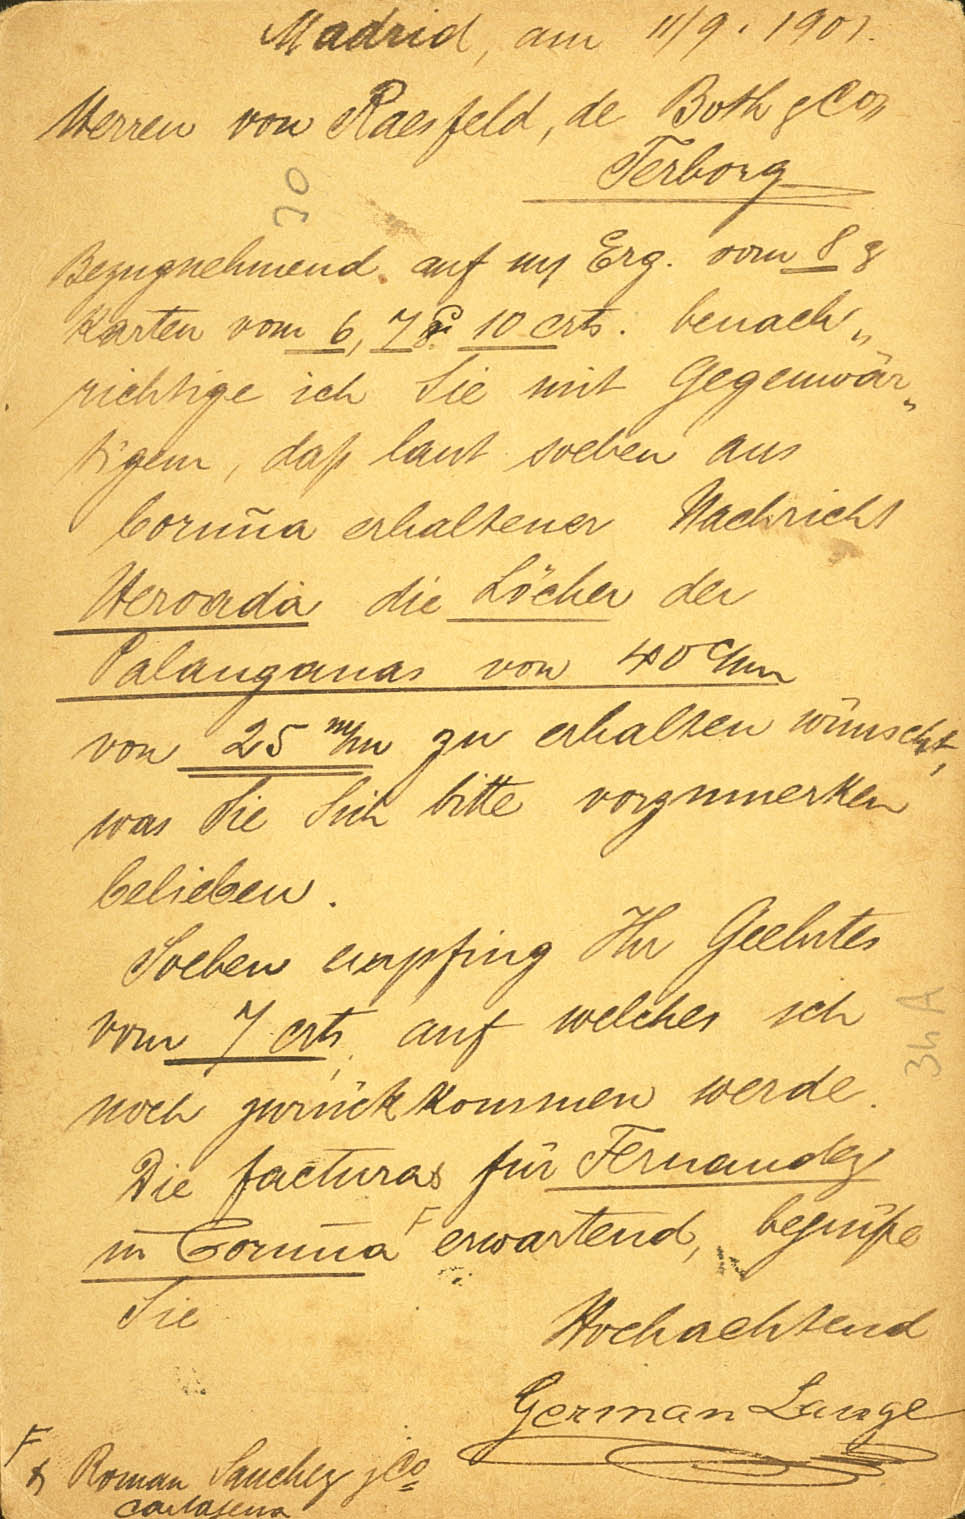 Madrid, am 11/9. 1901.
Herren von Raesfeld, de Both & Co,
Terborg
30
Bezugnehmend auf m/ Erg. vom 8 &
Karten vom 6, 7 & 10 crts. benach„
richtige ich Sie mit Gegenwär„
tigem, daß laut soeben aus
Coruña erhaltener Nachricht
die Löcher der
Palanganas von 40 c/m
von 25 m/m zu erhalten wünscht,
was Sie Sich bitte vorzumerken
belieben.
Soeben empfing Ihr Geehrtes
vom 7 crts, auf welches ich
noch zurückkommen werde.
Die facturas für Fernandez
in Coruña F erwartend, begrüße
Sie
Hochachtend
German Lange
F
& Roman Sanchez & Co
Cartagena